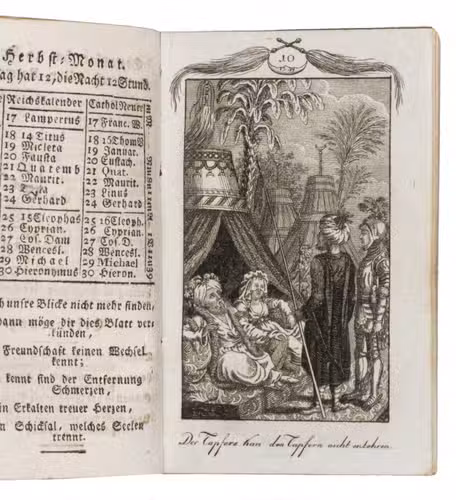 Herbst-Monat.
ag hat 12, die Nacht 12 Stund.
Reichskalender
17 Lampertus
18 14 Titus
19 Micleta
20 Fausta
21 Quatemb
22 Maurit.
23 Tecla
24 Gerhard
25 15 Cleophas
26 Cyprian.
27 Cos. Dam
28 Wencesl.
29 Michael
30 Hieronymus
Cathol Neuer
17 Franc. W.
18 16 Thom V
19 Januar.
20 Eustach.
21 Quat.
22 Maurit.
23 Linus
24 Gerhard
25 16 Cleoph.
26 Cyprian.
27 Cos. D.
28 Wencesl.
29 Michael
30 Hieron.
ch unsre Blicke nicht mehr finden,
dann möge dir dies Blatt ver-
künden,
Freundschaft keinen Wechsel
kennt;
kennt sind der Entfernung
Schmerzen,
in Erkalten treuer Herzen,
n Schicksal, welches Seelen
trennt.
10
Der Tapfere kan den Tapfern nicht